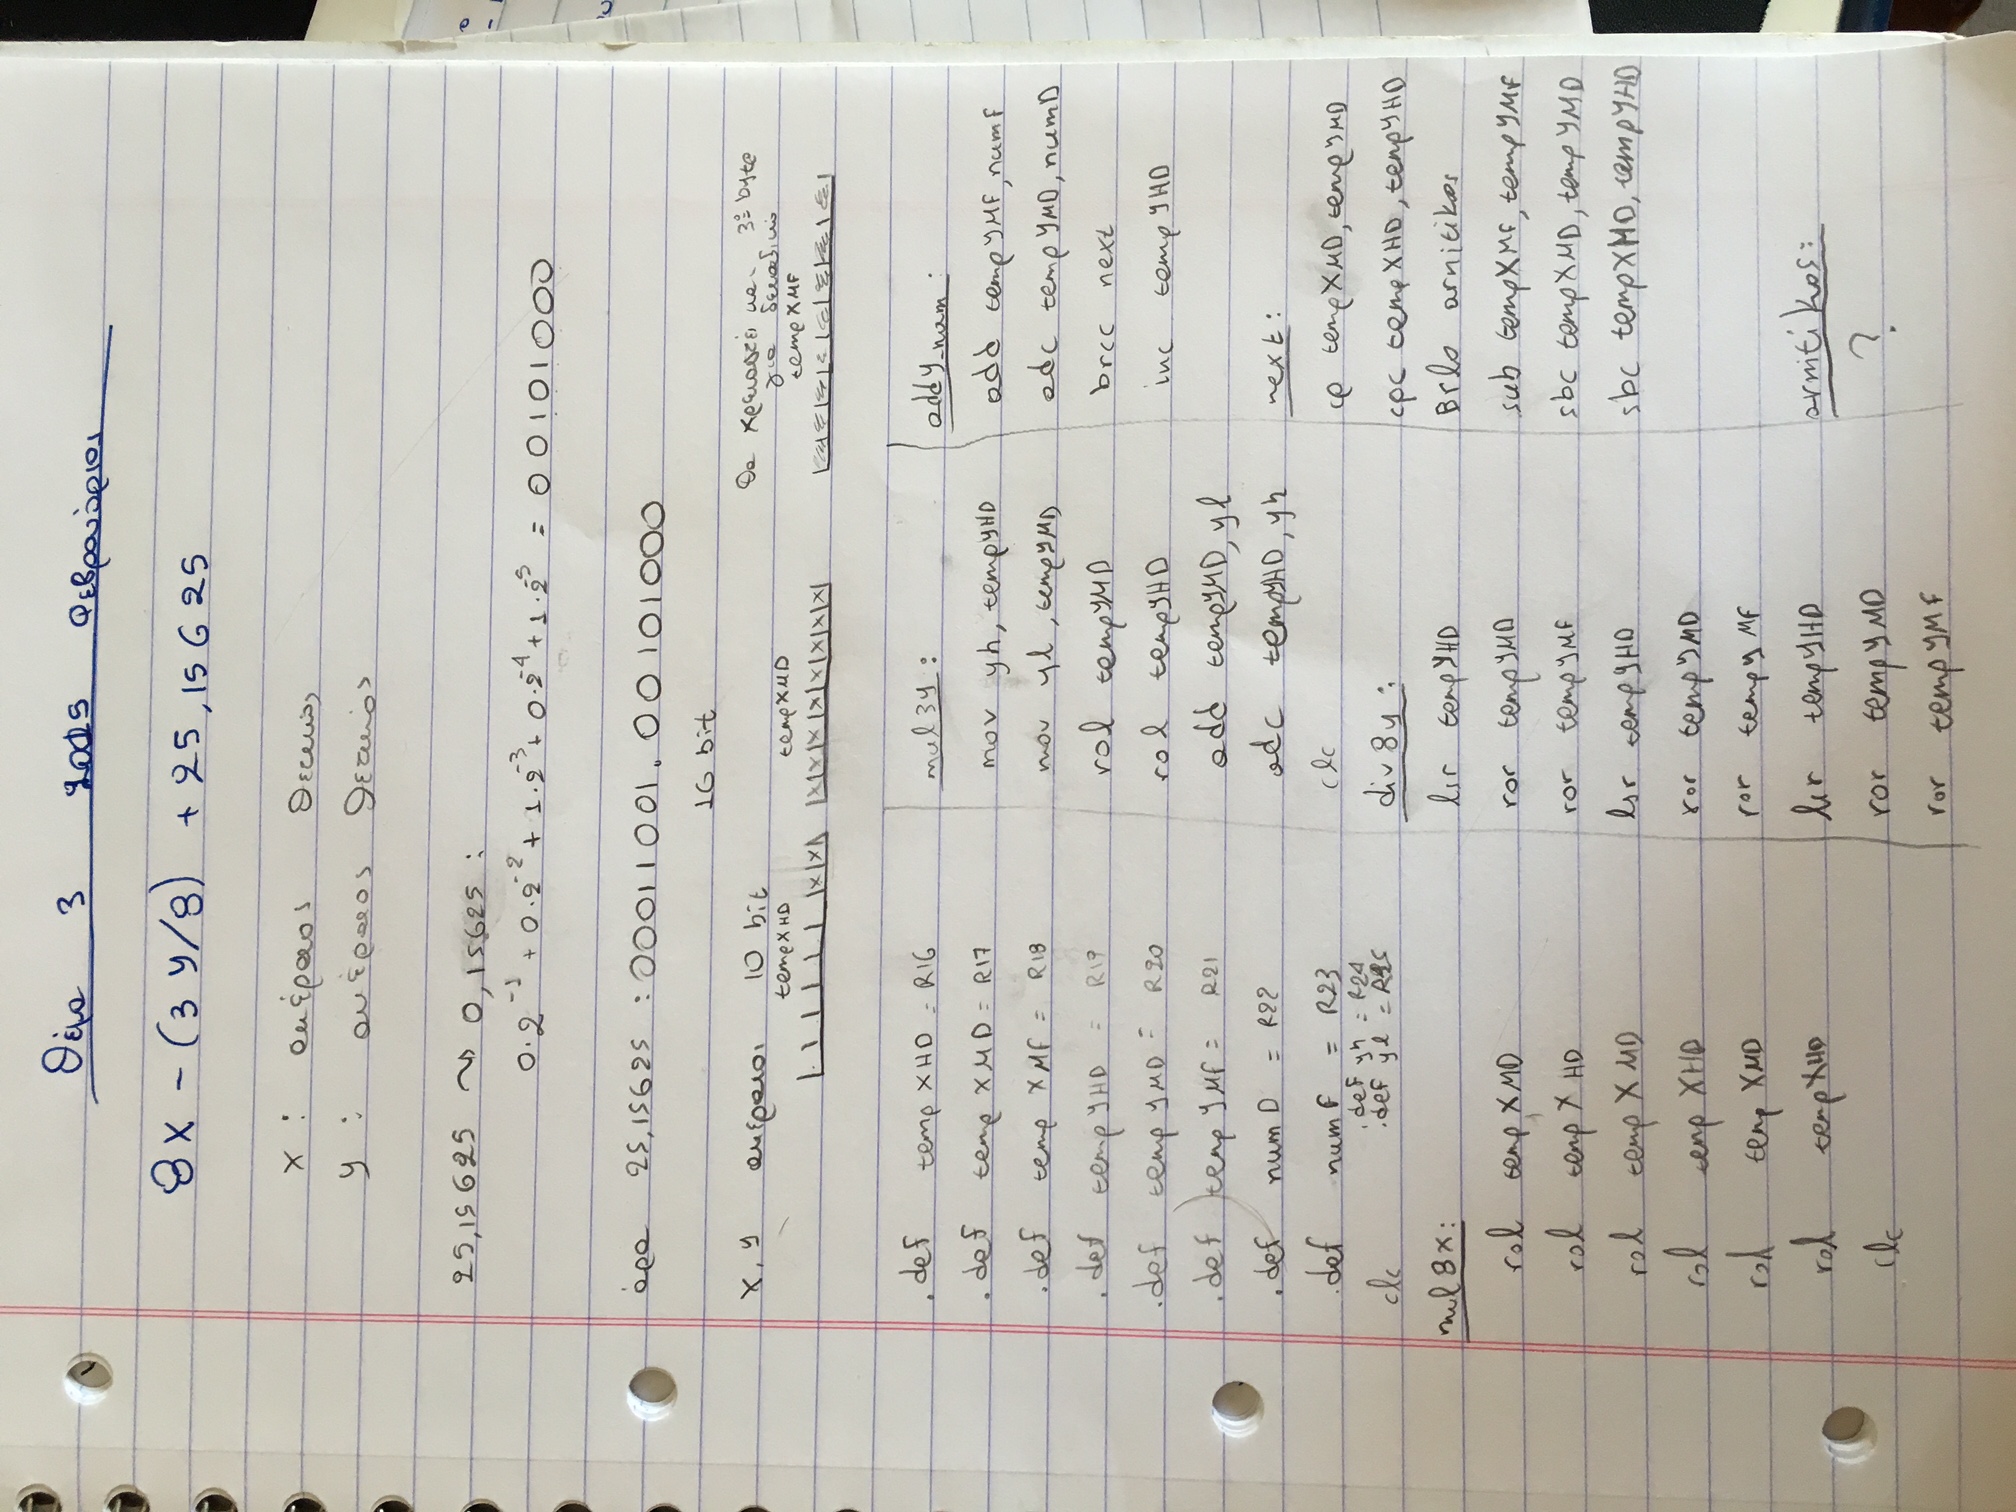 Θέμα 3 2015 Φεβρουάριος
8x - (3y/8) + 25,15625
x : ακέραιος θετικός
y : ακέραιος θετικός
25,15625 ⤳ 0,15625 :
0·2^-1 + 0·2^-2 + 1·2^-3 + 0·2^-4 + 1·2^-5 = 00101000
άρα 25,15625 : 00011001.00101000
16 bit
x, y ακέραιοι 10 bit
θα χρειαστεί και 3ο byte
για δεκαδικό
tempXHD tempXMD tempXMF
|x|x| |x|x|x|x|x|x|x|x|
.def tempXHD = R16
.def tempXMD = R17
.def tempXMF = R18
.def tempYHD = R19
.def tempYMD = R20
.def tempYMF = R21
.def numD = R22
.def numF = R23
.def yh = R24
.def yl = R25
clc
mul8x:
rol tempXMD
rol tempXHD
rol tempXMD
rol tempXHD
rol tempXMD
rol tempXHD
clc
mul3y:
mov yh, tempYHD
mov yl, tempYMD
rol tempYMD
rol tempYHD
add tempYMD, yl
adc tempYHD, yh
clc
div8y:
lsr tempYHD
ror tempYMD
ror tempYMF
lsr tempYHD
ror tempYMD
ror tempyMF
lsr tempYHD
ror tempYMD
ror tempYMF
addY_num:
add tempYMF, numF
adc tempYMD, numD
brcc next
inc tempYHD
next:
cp tempXMD, tempYMD
cpc tempXHD, tempYHD
Brlo arnitikos
sub tempXMF, tempYMF
sbc tempXMD, tempYMD
sbc tempXHD, tempYHD
arnitikos:
?